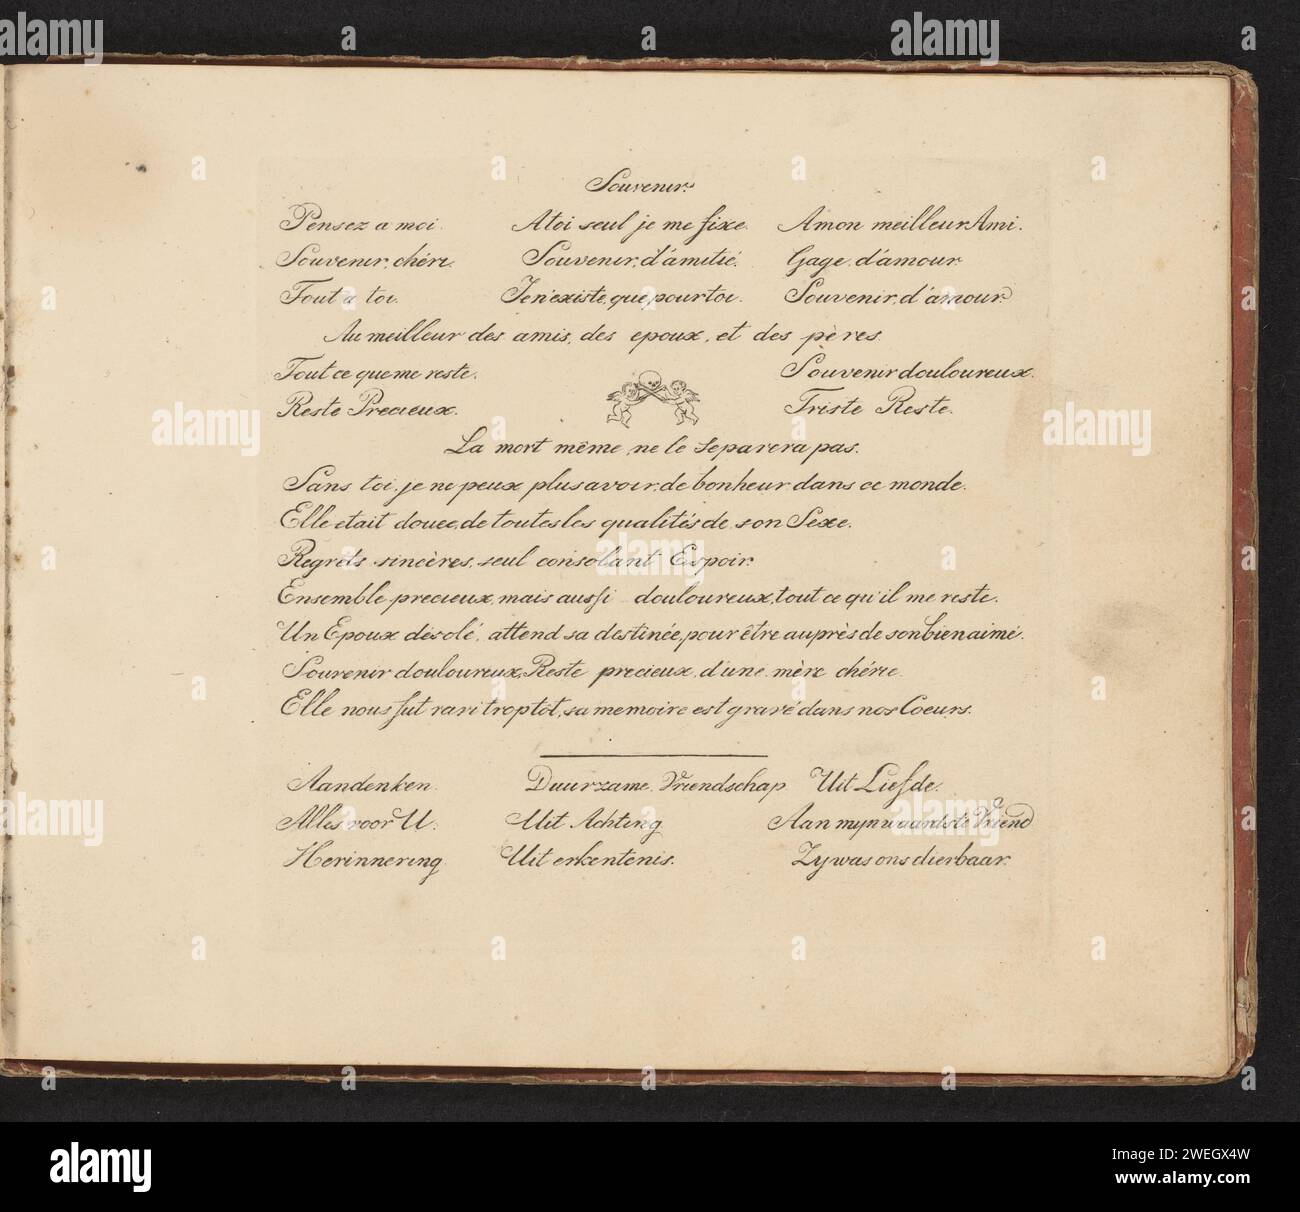 Souvenir.
Pensez a moi. A toi seul je me fixe. A mon meilleur Ami.
Souvenir, chéri. Souvenir, d'amitié. Gage, d'amour.
Tout a toi. Je n'existe, que pour toi. Souvenir, d'amour.
Au meilleur des amis, des epoux, et des pères.
Tout ce que me reste. Souvenir douloureux.
Reste Precieux. Triste Reste.
La mort même, ne le separera pas.
Sans toi, je ne peux plus avoir, de bonheur dans ce monde.
Elle etait douee, de toutes les qualités de son Sexe.
Regrets sincères, seul consolant Espoir.
Ensemble precieux, mais aussi douloureux, tout ce qu'il me reste.
Un Epoux désolé, attend sa destinée, pour être auprès de son bien aimé.
Souvenir douloureux, Reste precieux, d'une mère chérie.
Elle nous fut ravi trop tôt, sa memoire est gravé dans nos Coeurs.
Aandenken. Duurzame Vriendschap. Uit Liefde.
Alles voor U. Uit Achting Aan mijn waardste Vriend
Herinnering. Uit erkentenis. Zy was ons dierbaar.
alamy
alamy
alamy
alamy
alamy
alamy
alamy
Image ID: 2WEGX4W
www.alamy.com